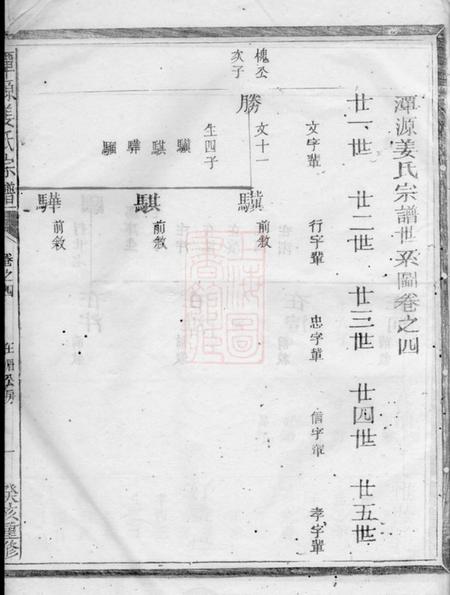 潭源姜氏宗譜世系圖卷之四
廿一世 廿二世 廿三世 廿四世 廿五世
文字輩 行字輩 忠字輩 信字輩 孝字輩
槐公次子
勝
文十一
生四子
驥 騏 驊 騮
驥
前敘
騏
前敘
驊
前敘
潭源姜氏宗譜
卷之四
一
癸亥重修